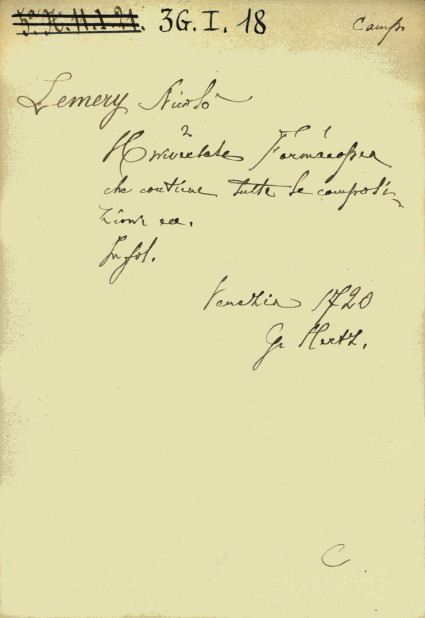 5ª X. 11. 1. 21. 3G. I. 18
Lemery Nicolò
2 1
Universale Farmacopea
che contiene tutte le composi-
zioni ec.
In fol.
Venezia 1720
G. Hertz.
C